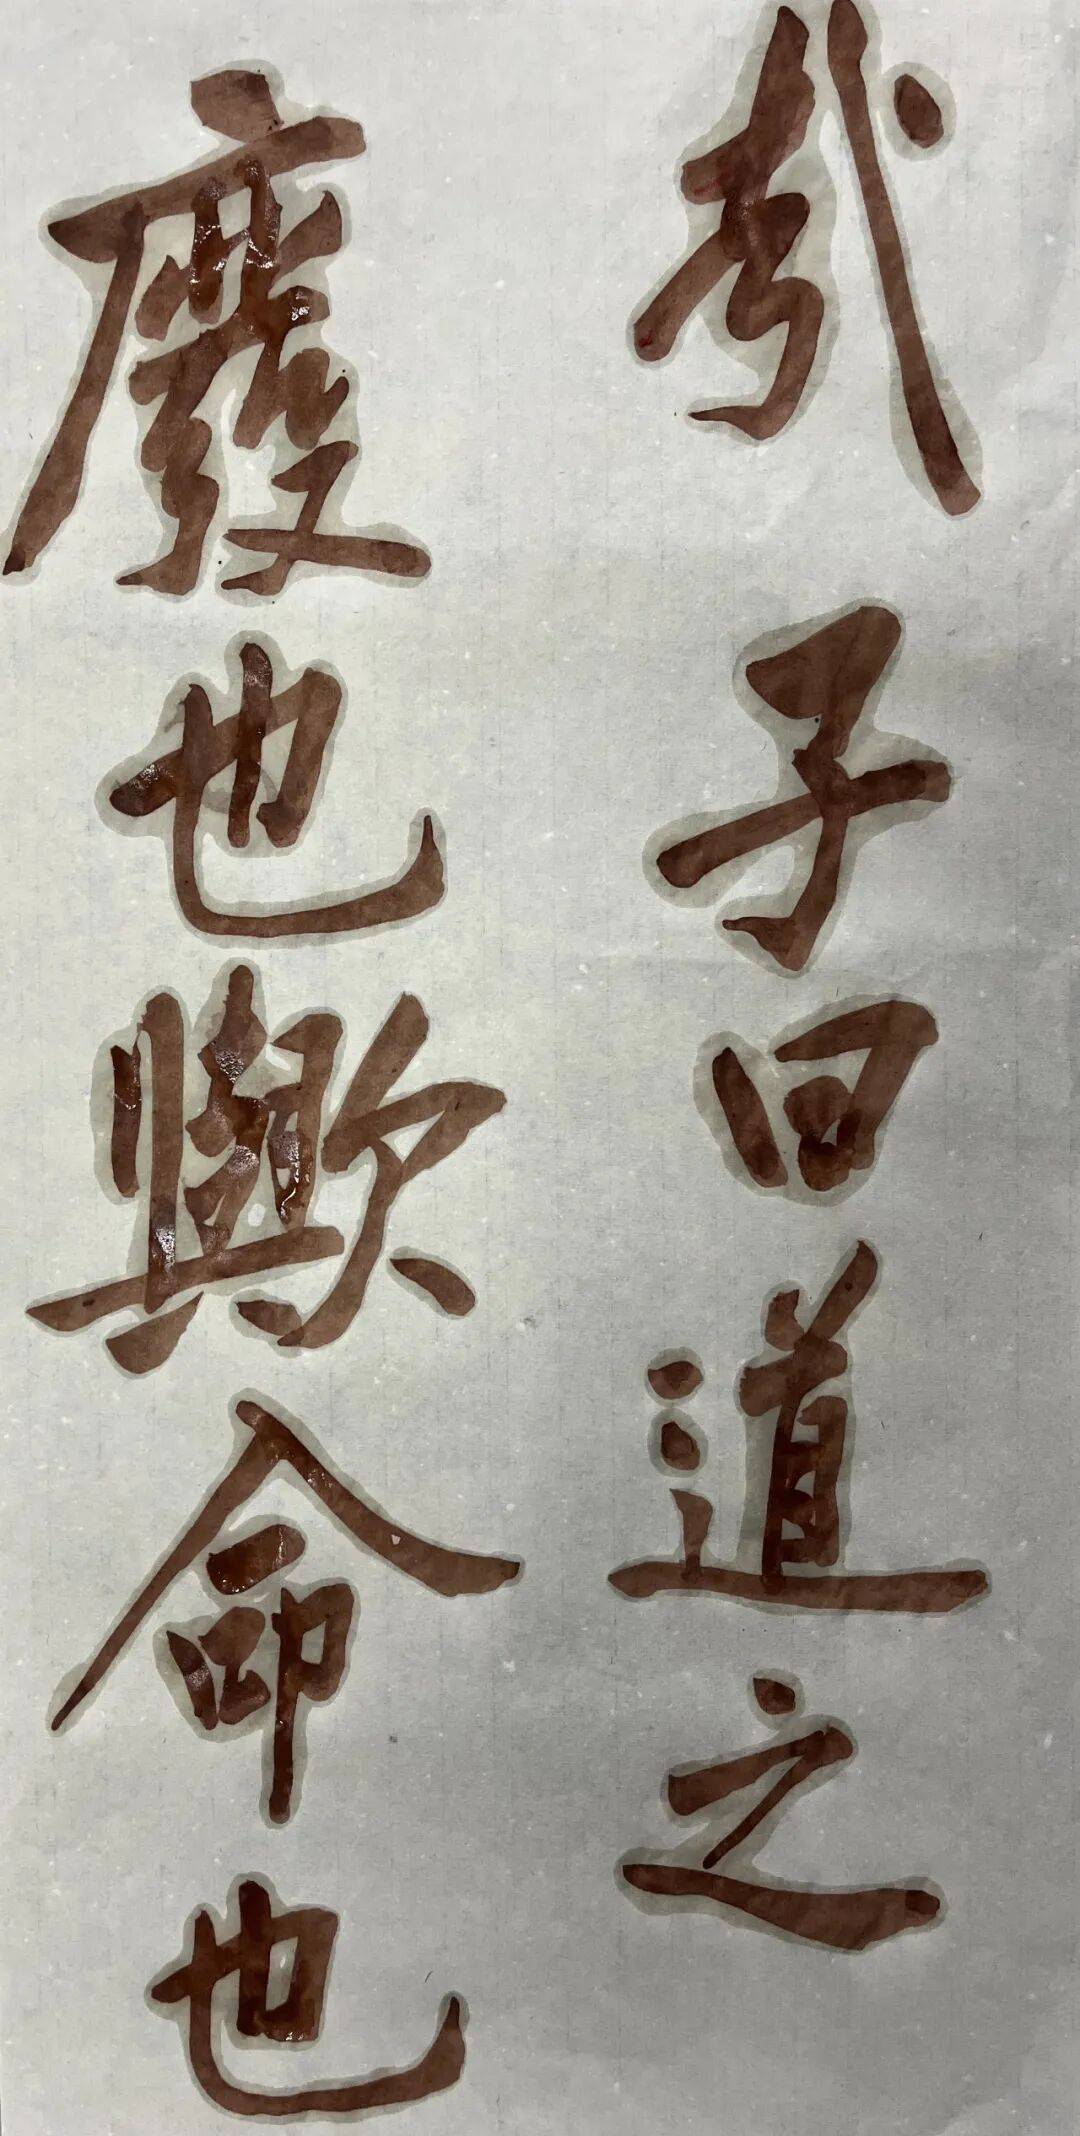 子曰道之
廢也歟命也